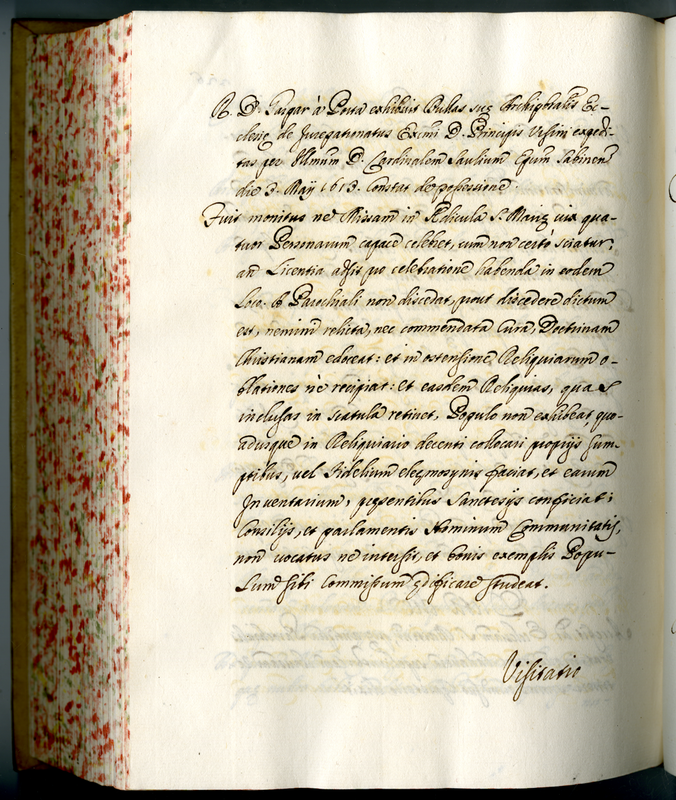 R. D. Gaspar à Porta exhibuit Bullas suę Archipbralis Ec-
clesię de Juregationatus Exĉmi D. Principis Ursini expedi-
tas per Illmum D. Cardinalem Saulium Epum Sabinen
die 3. Maÿ 1613. Constat de possessione.
Fuit monitus ne Missam in Ædicula S. Marię vix qua-
tuor Personarum capace celebret, cum non certò sciatur,
an Licentia adsit pro celebratione habenda in eodem
Loco. E Parochiali non discedat, prout discedere dictum
est, nemini relicta, nec commendata Cura, Doctrinam
Christianam edoceat: et in ostensione Reliquiarum o-
blationes nè recipiat: Et easdem Reliquias, quas
inclusas in scatula retinet, Populo non exhibeat, quo-
adusque in Reliquiario decenti collocari proprijs sum-
ptibus, vel Fidelium elęmosynis faciat, et earum
Inventarium, pręsentibus Sanctesijs conficiat:
Consilijs, et parlamentis Hominum Communitatis,
non vocatus ne intersit, et bonis exemplis Popu-
lum sibi Commissum ędificare studeat.
Visitatio